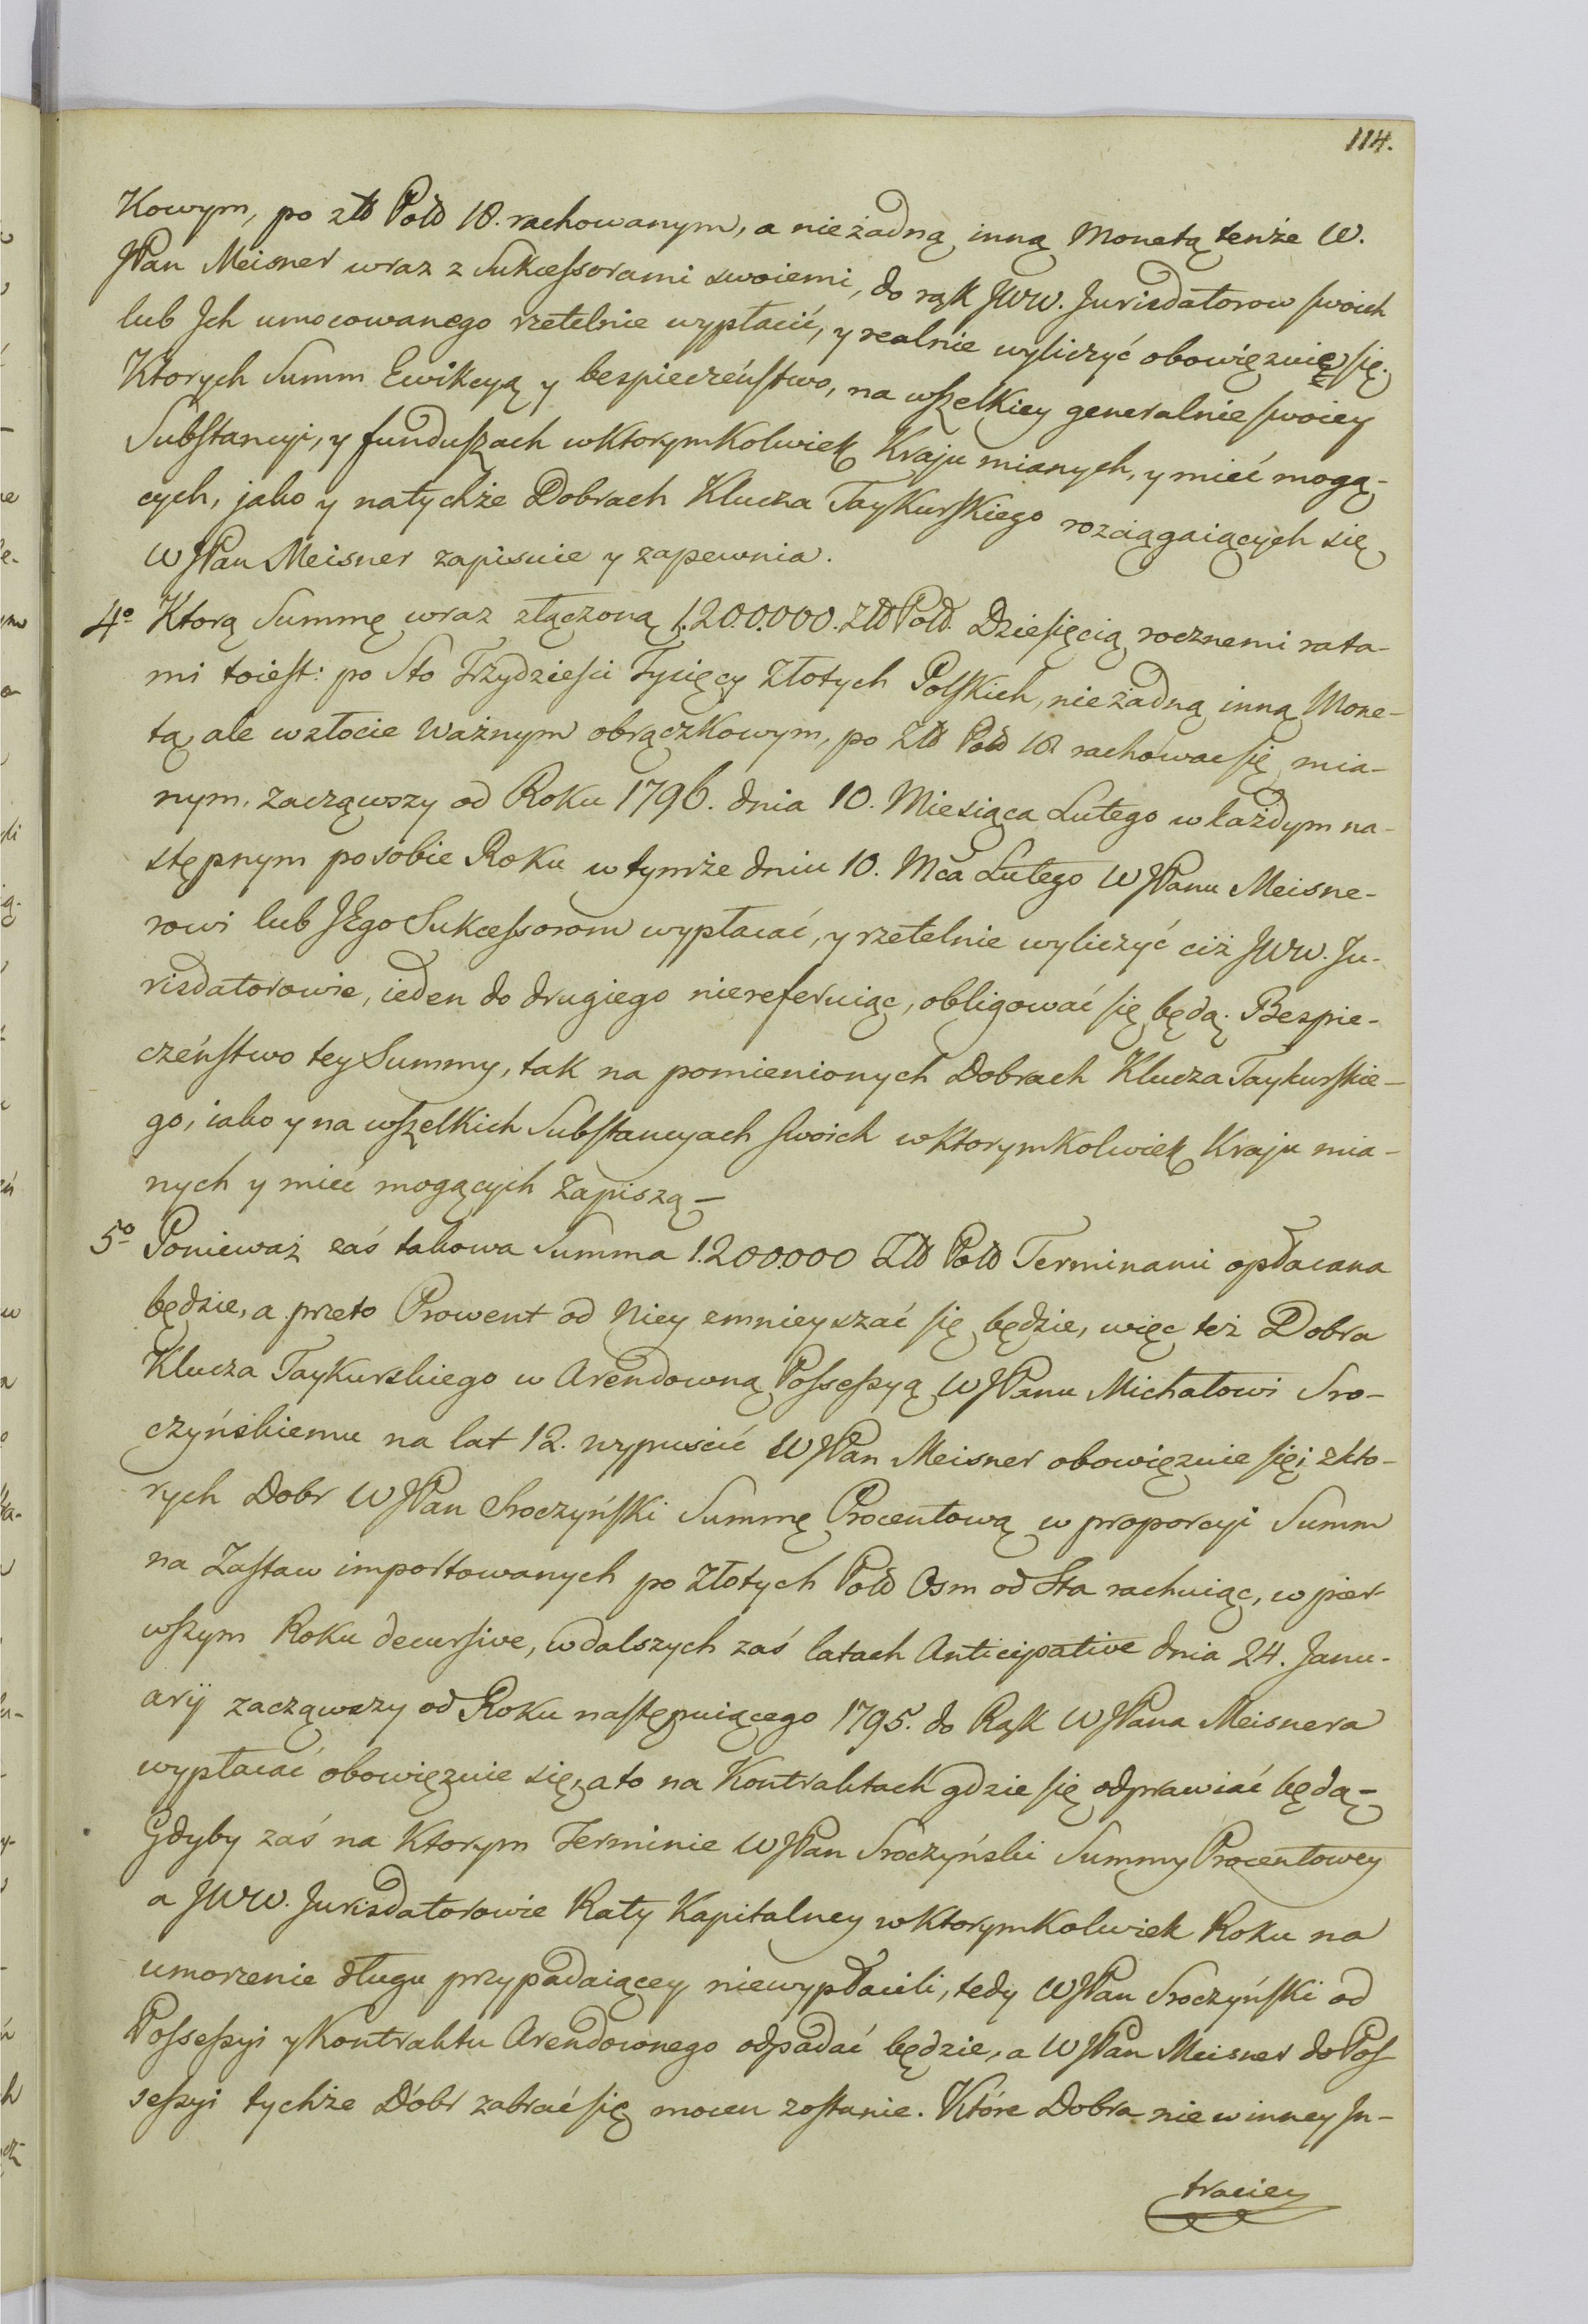 114.
Kowym, po złł Polł 18. rachowanym, a nieżadną inną Monetą tenże W.
JPan Meisner wraz z Sukcessorami swoiemi, do rąk JWW. Jurisdatorow swoich
lub Jch umocowanego rzetelnie wypłacić, y realnie wyliczyć obowięzuię się.
Ktorych Summ Ewikcyą y bespieczeństwo, na wszelkiey generalnie swoiey
Substancyi, y funduszach wktorymkolwiek Kraju mianych, y mieć mogą-
cych, jako y natychże Dobrach Klucza Taykurskiego rozciągaiących się
WJPan Meisner zapisuie y zapewnia.
4º Ktorą Summę wraz złączoną 1.200.000. Złł Polł. Dziesięcią rocznemi rata-
mi toiest: po Sto Trzydzieści Tysięcy Złotych Polskich, nieżadną inną Mone-
tą, ale wzłocie Ważnym obrączkowym, po Złł Polł 18 rachować się mia-
nym, zacząwszy od Roku 1796. dnia 10. Miesiąca Lutego wkażdym na-
stępnym posobie Roku wtymże dniu 10. Mca Lutego WJPanu Meisne-
rowi lub JEgo Sukcessorom wypłacać, y rzetelnie wyliczyć ciż JWW. Ju-
risdatorowie, ieden do drugiego niereferuiąc, obligować się będą. Bespie-
czeństwo tey Summy, tak na pomienionych Dobrach Klucza Taykurskie-
go, iako y na wszelkich Substancyach swoich wktorymkolwiek Kraju mia-
nych y mieć mogących Zapiszą —
5º Ponieważ zaś takowa Summa 1.200.000 Złł Polł Terminami opłacana
będzie, a przeto Prowent od Niey zmnieyszać się będzie, więc też Dobra
Klucza Taykurskiego w Arendowną Possessyą WJPanu Michałowi Sro-
czyńskiemu na lat 12. wypuścić WJPan Meisner obowięzuie się; zkto-
rych Dobr WJPan Sroczyński Summę Procentową w proporcyi Summ
na Zastaw importowanych po Złotych Polł Osm od Sta rachuiąc, w pier-
wszym Roku decursive, w dalszych zaś latach Anticipative dnia 24. Janu-
arij zacząwszy od Roku następuiącego 1795. do Rąk WJPana Meisnera
wypłacać obowięzuie się, a to na Kontraktach gdzie się odprawiać będą —
Gdyby zaś na Ktorym Terminie WJPan Sroczyński Summy Procentowey
a JWW. Jurisdatorowie Raty Kapitalney wktorymkolwiek Roku na
umorzenie długu przypadaiącey niewypłacili, tedy WJPan Sroczyński od
Possessyi y Kontraktu Arendownego odpadać będzie, a WJPan Meisner do Pos-
sessyi tychże Dóbr zabrać się mocen zostanie. Które Dobra nie winney In-
traciey